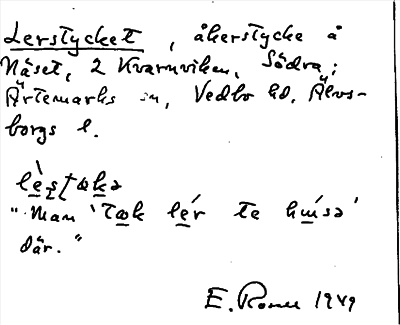 Lerstycket, åkerstycke å
Näset, 2 Kvarnviken, Södra;
Ärtemarks sn, Vedbo hd, Älvs-
borgs l.
"Man 'tæk lér te
där."
E. 1949